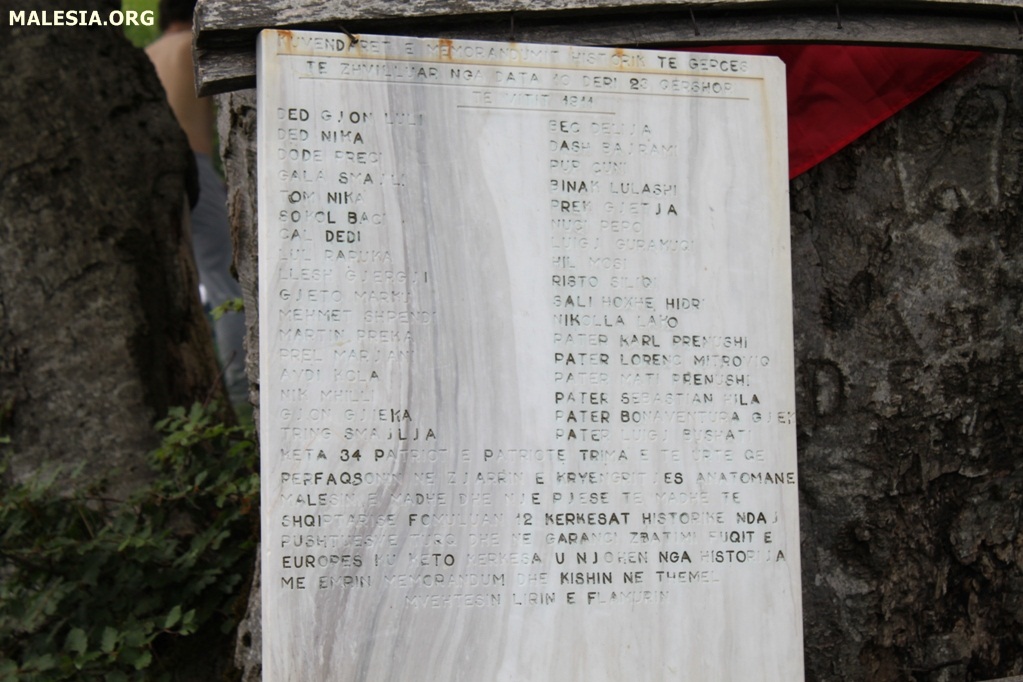 MALESIA.ORG
KUVENDARET E MEMORANDUMIT HISTORIK TE GERCES
TE ZHVILLUAR NGA DATA 10 DERI 23 QERSHOR
TE VITIT 1911
DED GJON LULI
DED NIKA
DODE PRECI
GALA SMAJLI
TOM NIKA
SOKOL BACI
CAL DEDI
LUL RAPUKA
LLESH GJERGJI
GJETO MARKU
MEHMET SHPENDI
MARTIN PREKA
PREL MARJIANI
AVDI KOLA
NIK MHILLI
GJON GJIEKA
TRING SMAJLJA
BEC DELIJA
DASH BAJRAMI
PUP CUNI
BINAK LULASHI
PREK GJETJA
LUIGJ GURAKUQI
HIL MOSI
RISTO SILIQI
SALI HOXHE HIDRI
NIKOLLA LAKO
PATER KARL PRENUSHI
PATER LORENC MITROVIQ
PATER MATI PRENUSHI
PATER SEBASTIAN HILA
PATER BONAVENTURA GJEK
PATER LUIGJ BUSHATI
KETA 34 PATRIOT E PATRIOTE TRIMA E TE URTE QE
PERFAQSONIN NE ZJARRIN E KRYENGRITJES ANATOMANE
MALESIN E MADHE DHE NJE PJESE TE MADHE TE
SHQIPTARISE FOMULUAN 12 KERKESAT HISTORIKE NDAJ
PUSHTUESVE TURQ DHE NE GARANCI ZBATIMI FUQIT E
EUROPES KU KETO KERKESA U NJOHEN NGA HISTORIJA
ME EMRIN MEMORANDUM DHE KISHIN NE THEMEL
MVEHTESIN LIRIN E FLAMURIN